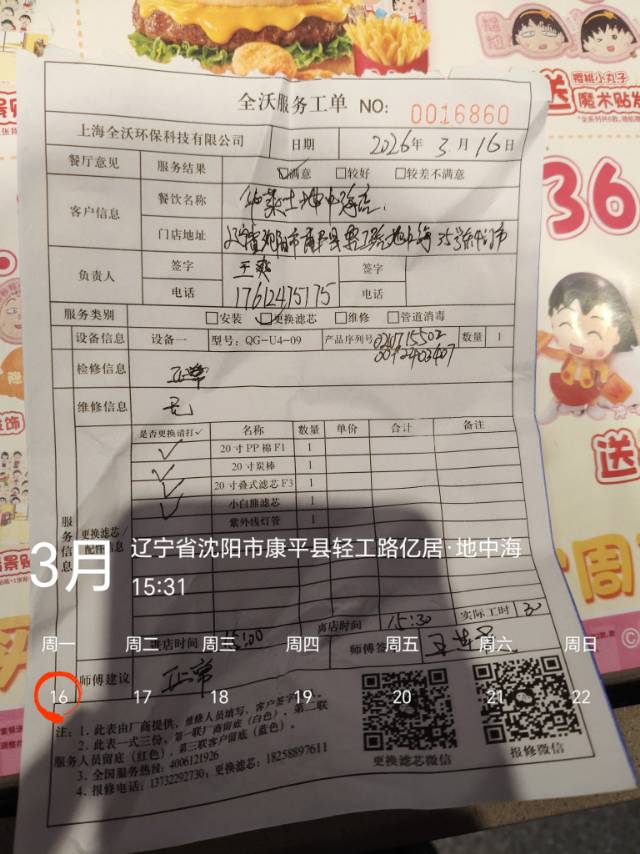 全沃服务工单 NO: 0016860
上海全沃环保科技有限公司 日期 2026年3月16日
餐厅意见 服务结果 ☑满意 □较好 □较差不满意
客户信息 餐饮名称 华莱士地中海店
门店地址 辽宁省沈阳市康平县轻工路地中海35号
负责人 签字 王爽 签字
电话 17612475775 电话
服务类别 □安装 ☑更换滤芯 □维修 □管道消毒
设备信息 设备一 型号: QG-U4-09 产品序列号 数量 1
检修信息 正常
维修信息 无
服务信息 更换滤芯/配件信息
是否更换请打✓ 名称 数量 单价 合计 备注
✓ 20寸PP棉F1 1
✓ 20寸炭棒 1
✓ 20寸叠式滤芯F3 1
✓ 小白熊滤芯 1
紫外线灯管 1
3月 辽宁省沈阳市康平县轻工路亿居·地中海
15:31
进店时间 15:00 离店时间 15:30 实际工时 30
师傅建议 正常 师傅签
周一 周二 周三 周四 周五 周六 周日
16 17 18 19 20 21 22
注: 1. 此表由厂商提供, 维修人员填写、客户签字
2. 此表一式三份, 第一联厂商留底(白色)、第二联
服务人员留底(红色)、第三联客户留底(蓝色)。
3. 全国服务热线: 4006121926
4. 报修电话: 13732292730; 更换滤芯: 18258897611
更换滤芯微信 报修微信
樱桃小丸子
魔术贴发
36
送